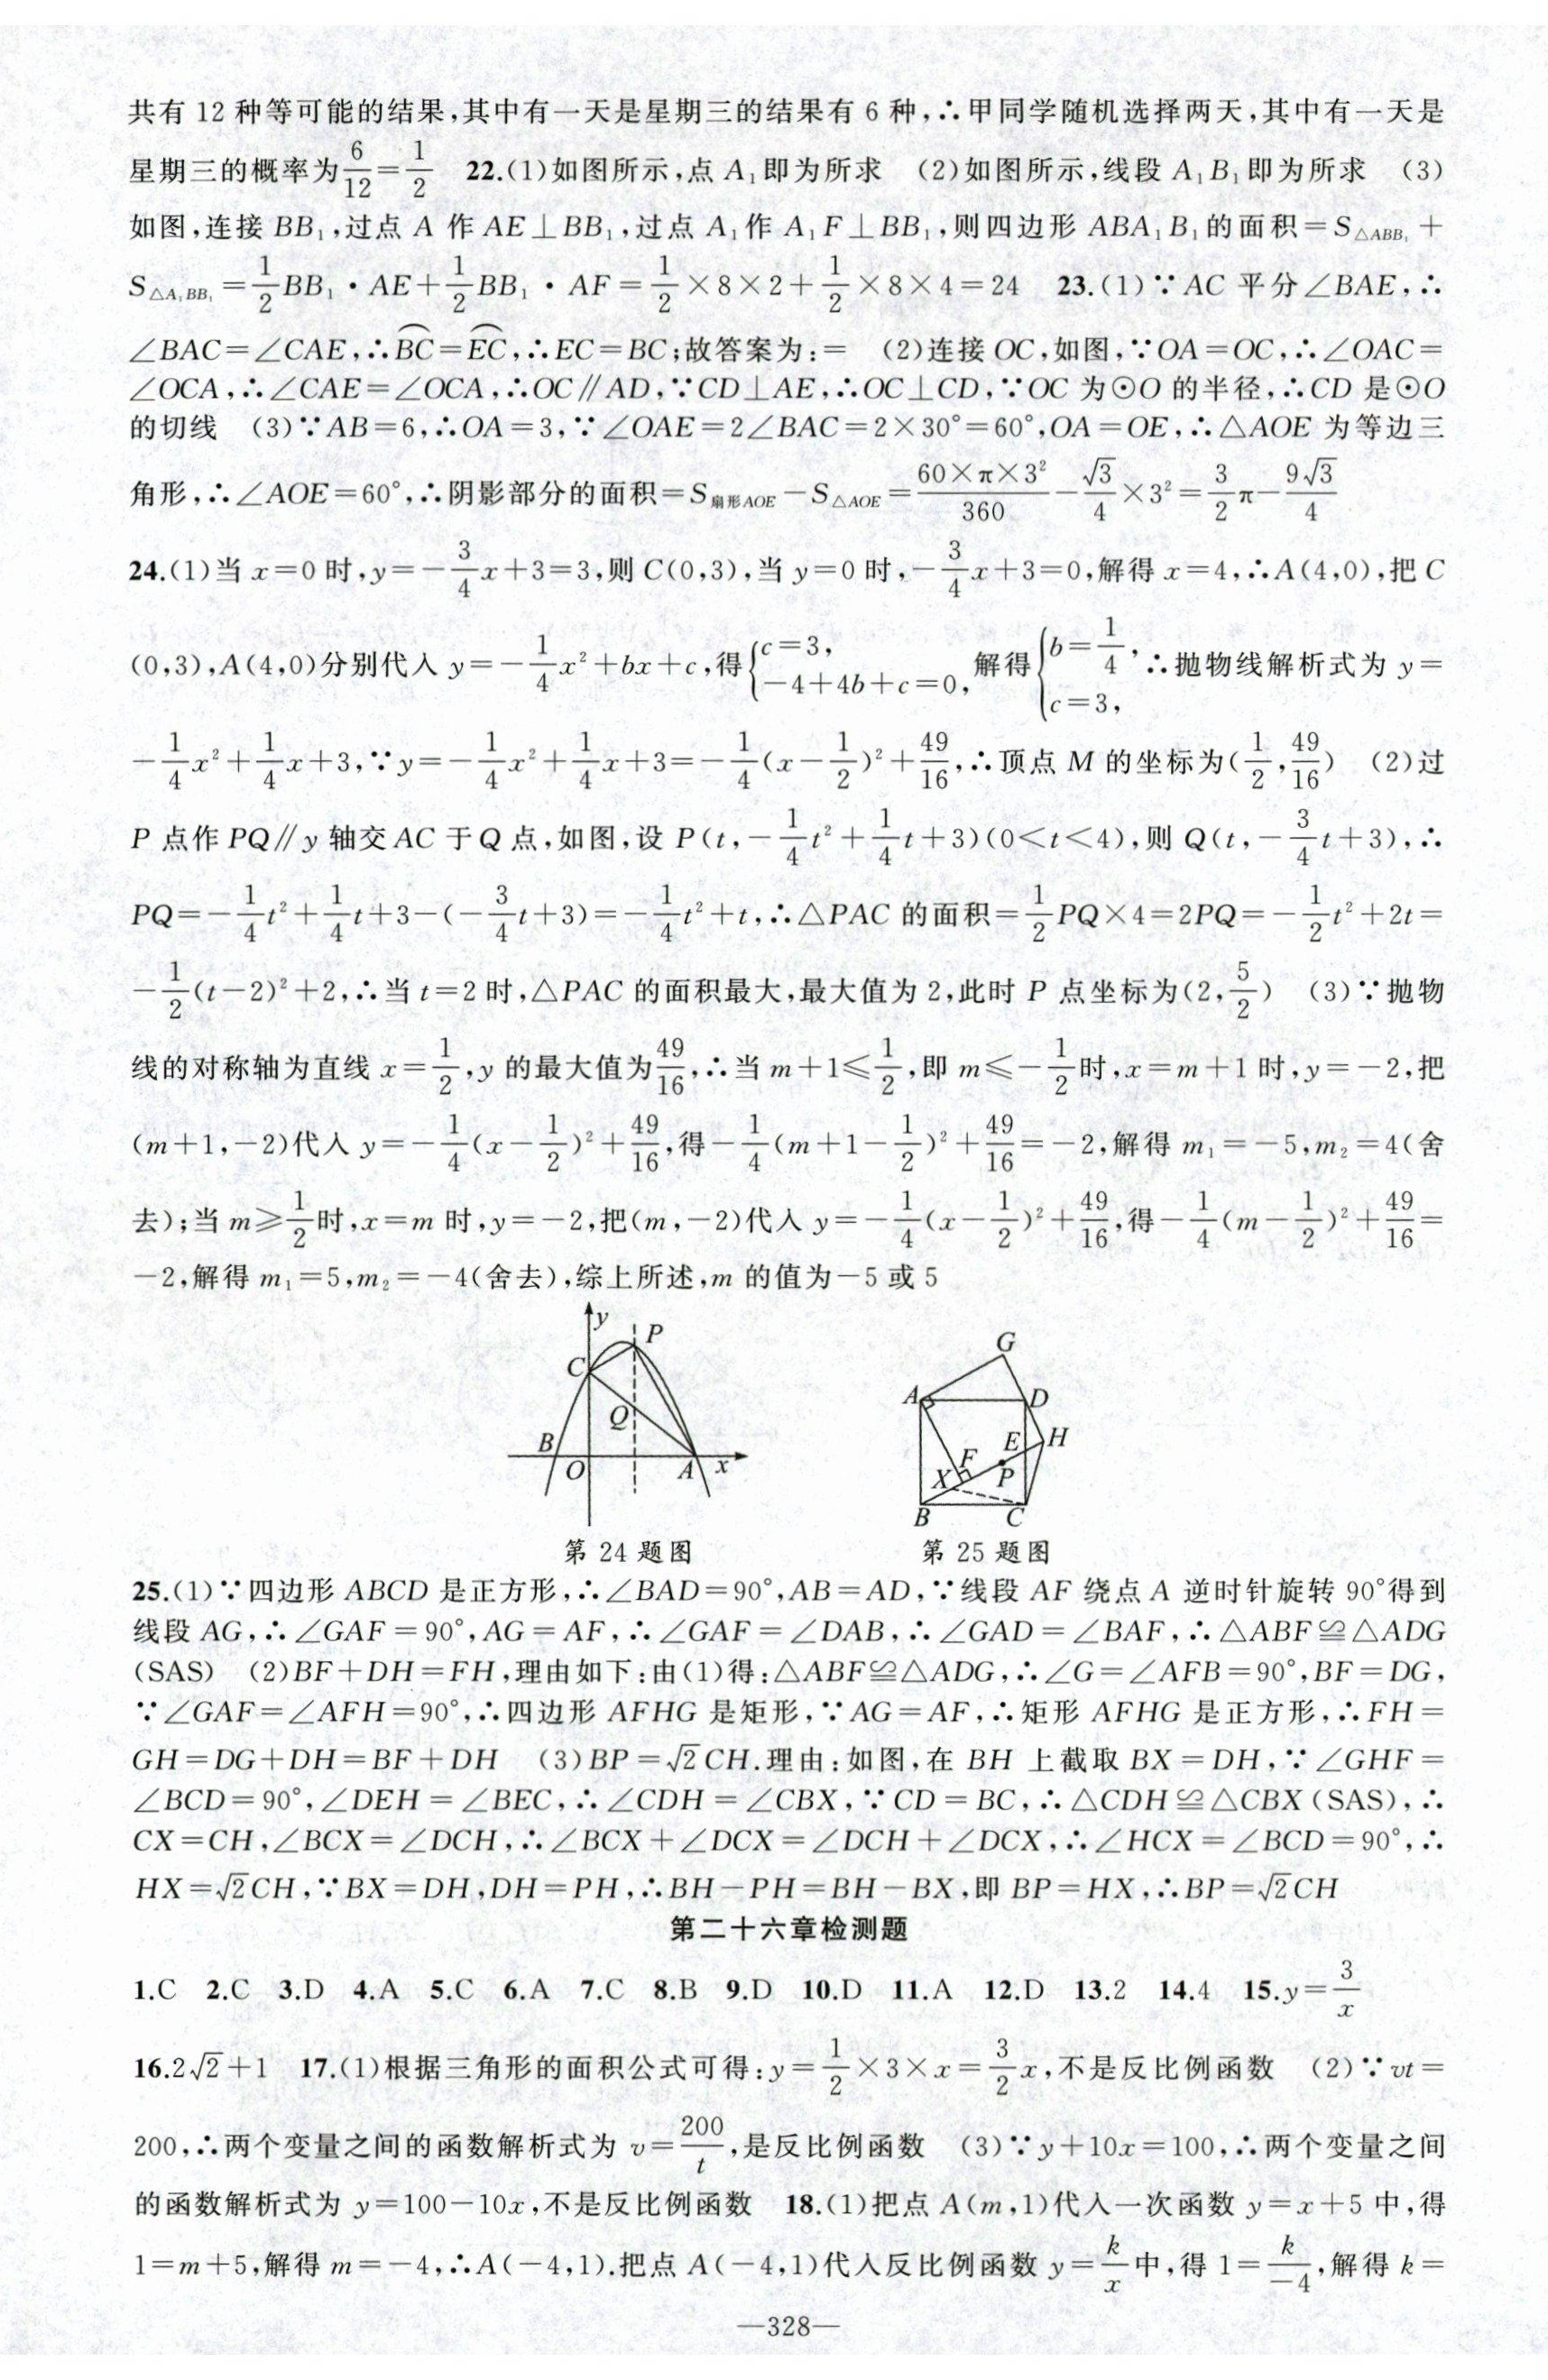 共有 12 种等可能的结果,其中有一天是星期三的结果有 6 种,∴甲同学随机选择两天,其中有一天是
星期三的概率为6/12=1/2 22.(1)如图所示,点 A₁即为所求 (2)如图所示,线段 A₁B₁即为所求 (3)
如图,连接 BB₁,过点 A 作 AE⊥BB₁,过点 A₁作 A₁F⊥BB₁,则四边形 ABA₁B₁的面积=S△ABB₁+
S△A₁BB₁=1/2BB₁・AE+1/2BB₁・AF=1/2×8×2+1/2×8×4=24 23.(1)∵AC 平分∠BAE,∴
∠BAC=∠CAE,∴B͡C=E͡C,∴EC=BC;故答案为:= (2)连接 OC,如图,∵OA=OC,∴∠OAC=
∠OCA,∴∠CAE=∠OCA,∴OC∥AD,∵CD⊥AE,∴OC⊥CD,∵OC 为⊙O 的半径,∴CD 是⊙O
的切线 (3)∵AB=6,∴OA=3,∵∠OAE=2∠BAC=2×30°=60°,OA=OE,∴△AOE 为等边三
角形,∴∠AOE=60°,∴阴影部分的面积=S扇形AOE-S△AOE=(60×π×3²)/360-√3/4×3²=3/2π-9√3/4
24.(1)当 x=0 时,y=-3/4x+3=3,则 C(0,3),当 y=0 时,-3/4x+3=0,解得 x=4,∴A(4,0),把 C
(0,3),A(4,0)分别代入 y=-1/4x²+bx+c,得{c=3, -4+4b+c=0,解得{b=1/4, c=3,∴抛物线解析式为 y=
-1/4x²+1/4x+3,∵y=-1/4x²+1/4x+3=-1/4(x-1/2)²+49/16,∴顶点 M 的坐标为(1/2,49/16) (2)过
P 点作 PQ∥y 轴交 AC 于 Q 点,如图,设 P(t,-1/4t²+1/4t+3)(0<t<4),则 Q(t,-3/4t+3),∴
PQ=-1/4t²+1/4t+3-(-3/4t+3)=-1/4t²+t,∴△PAC 的面积=1/2PQ×4=2PQ=-1/2t²+2t=
-1/2(t-2)²+2,∴当 t=2 时,△PAC 的面积最大,最大值为 2,此时 P 点坐标为(2,5/2) (3)∵抛物
线的对称轴为直线 x=1/2,y 的最大值为49/16,∴当 m+1≤1/2,即 m≤-1/2时,x=m+1 时,y=-2,把
(m+1,-2)代入 y=-1/4(x-1/2)²+49/16,得-1/4(m+1-1/2)²+49/16=-2,解得 m₁=-5,m₂=4(舍
去);当 m≥1/2时,x=m 时,y=-2,把(m,-2)代入 y=-1/4(x-1/2)²+49/16,得-1/4(m-1/2)²+49/16=
-2,解得 m₁=5,m₂=-4(舍去),综上所述,m 的值为-5 或 5
y P C Q B O A x
G A D E H F X P B C
第 24 题图 第 25 题图
25.(1)∵四边形 ABCD 是正方形,∴∠BAD=90°,AB=AD,∵线段 AF 绕点 A 逆时针旋转 90°得到
线段 AG,∴∠GAF=90°,AG=AF,∴∠GAF=∠DAB,∴∠GAD=∠BAF,∴△ABF≌△ADG
(SAS) (2)BF+DH=FH,理由如下:由(1)得:△ABF≌△ADG,∴∠G=∠AFB=90°,BF=DG,
∵∠GAF=∠AFH=90°,∴四边形 AFHG 是矩形,∵AG=AF,∴矩形 AFHG 是正方形,∴FH=
GH=DG+DH=BF+DH (3)BP=√2CH.理由:如图,在 BH 上截取 BX=DH,∵∠GHF=
∠BCD=90°,∠DEH=∠BEC,∴∠CDH=∠CBX,∵CD=BC,∴△CDH≌△CBX(SAS),∴
CX=CH,∠BCX=∠DCH,∴∠BCX+∠DCX=∠DCH+∠DCX,∴∠HCX=∠BCD=90°,∴
HX=√2CH,∵BX=DH,DH=PH,∴BH-PH=BH-BX,即 BP=HX,∴BP=√2CH
第二十六章检测题
1.C 2.C 3.D 4.A 5.C 6.A 7.C 8.B 9.D 10.D 11.A 12.D 13.2 14.4 15.y=3/x
16.2√2+1 17.(1)根据三角形的面积公式可得:y=1/2×3×x=3/2x,不是反比例函数 (2)∵vt=
200,∴两个变量之间的函数解析式为 v=200/t,是反比例函数 (3)∵y+10x=100,∴两个变量之间
的函数解析式为 y=100-10x,不是反比例函数 18.(1)把点 A(m,1)代入一次函数 y=x+5 中,得
1=m+5,解得 m=-4,∴A(-4,1).把点 A(-4,1)代入反比例函数 y=k/x中,得 1=k/-4,解得 k=
—328—